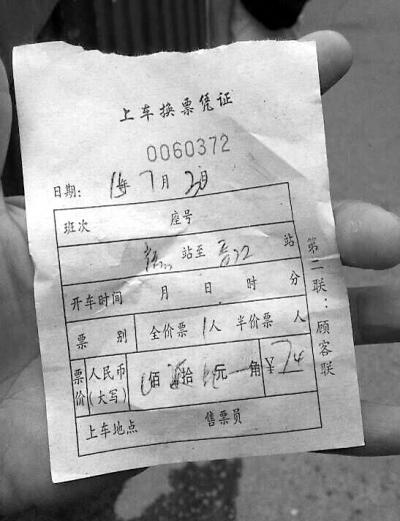 上车换票凭证
0060372
日期: 年7月2日
班次 座号
站至 晋江 站
开车时间 月 日 时 分
票别 全价票 1人 半价票 人
票价 人民币(大写) 佰 拾 元 角 ¥74
上车地点 售票员
第二联:顾客联